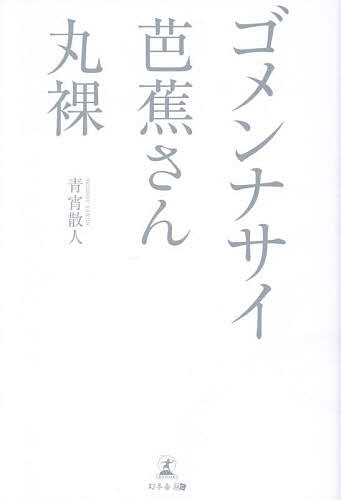 ゴメンナサイ
芭蕉さん
丸裸
青宵散人
GENTOSHA
幻冬舎